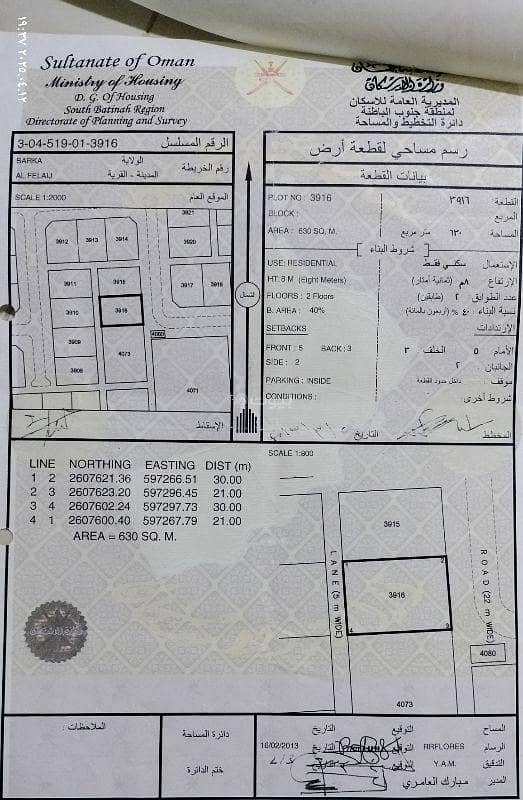 Sultanate of Oman
Ministry of Housing
D. G. Of Housing
South Batinah Region
Directorate of Planning and Survey
وزارة الإسكان
المديرية العامة للاسكان
لمنطقة جنوب الباطنة
دائرة التخطيط والمساحة
3-04-519-01-3916 الرقم المسلسل
BARKA الولاية
AL FELAIJ المدينة - القرية
رقم الخريطة
SCALE 1:2000 الموقع العام
3921
3912 3913 3914 3920
3911 3915 3917 3918
3910 3916
4080
3909 4073
3908 4071
الإسقاط
شمال
رسم مساحي لقطعة أرض
بيانات القطعة
PLOT NO : 3916 ٣٩١٦ القطعة
BLOCK : المربع
AREA : 630 SQ. M. ٦٣٠ متر مربع المساحة
شروط البناء
USE: RESIDENTIAL سكني فقط الإستعمال
HT: 8 M (Eight Meters) ٨م (ثمانية أمتار) الارتفاع
FLOORS : 2 Floors ٢ (طابقين) عدد الطوابق
B. AREA : 40% ٤٠ % (أربعون بالمائة) نسبة البناء
SETBACKS الإرتدادات
FRONT : 5 BACK : 3 ٣ الخلف ٥ الأمام
SIDE : 2 ٢ الجانبان
PARKING : INSIDE داخل حدود القطعة موقف
CONDITIONS : شروط أخرى
التاريخ المخطط
SCALE 1:800
LINE NORTHING EASTING DIST (m)
1 2 2607621.36 597266.51 30.00
2 3 2607623.20 597296.45 21.00
3 4 2607602.24 597297.73 30.00
4 1 2607600.40 597267.79 21.00
AREA = 630 SQ. M.
3915
LANE (5 m WIDE)
ROAD (22 m WIDE)
1 2
3916
4 3
4080
4073
الملاحظات :
دائرة المساحة
ختم الدائرة
التاريخ التوقيع المساح
16/02/2013 التاريخ التوقيع RRFLORES الرسام
التاريخ التوقيع Y.A.M. التدقيق
مبارك العامري المدير